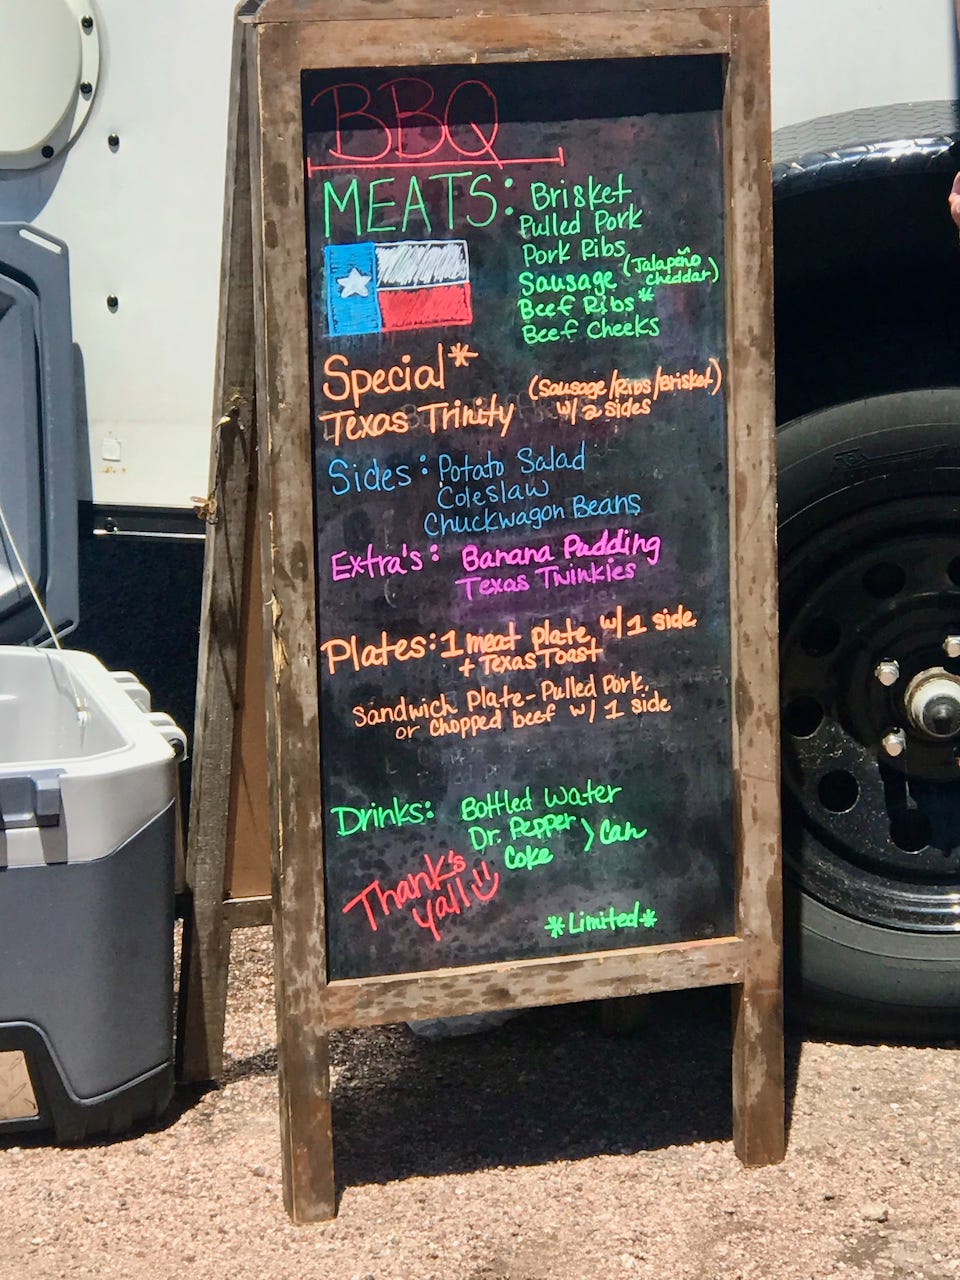 BBQ
MEATS: Brisket
Pulled Pork
Pork Ribs
Sausage (Jalapeño cheddar)
Beef Ribs*
Beef Cheeks
Special*
Texas Trinity (Sausage/Ribs/Brisket) w/ 2 sides
Sides: Potato Salad
Coleslaw
Chuckwagon Beans
Extra's: Banana Pudding
Texas Twinkies
Plates: 1 meat plate w/ 1 side
+ Texas Toast
Sandwich Plate - Pulled Pork,
or Chopped beef w/ 1 side
Drinks: Bottled Water
Dr. Pepper > Can
Coke
Thank's
Yall
*Limited*